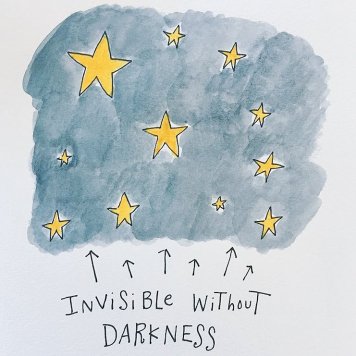 INVISIBLE WITHOUT
DARKNESS